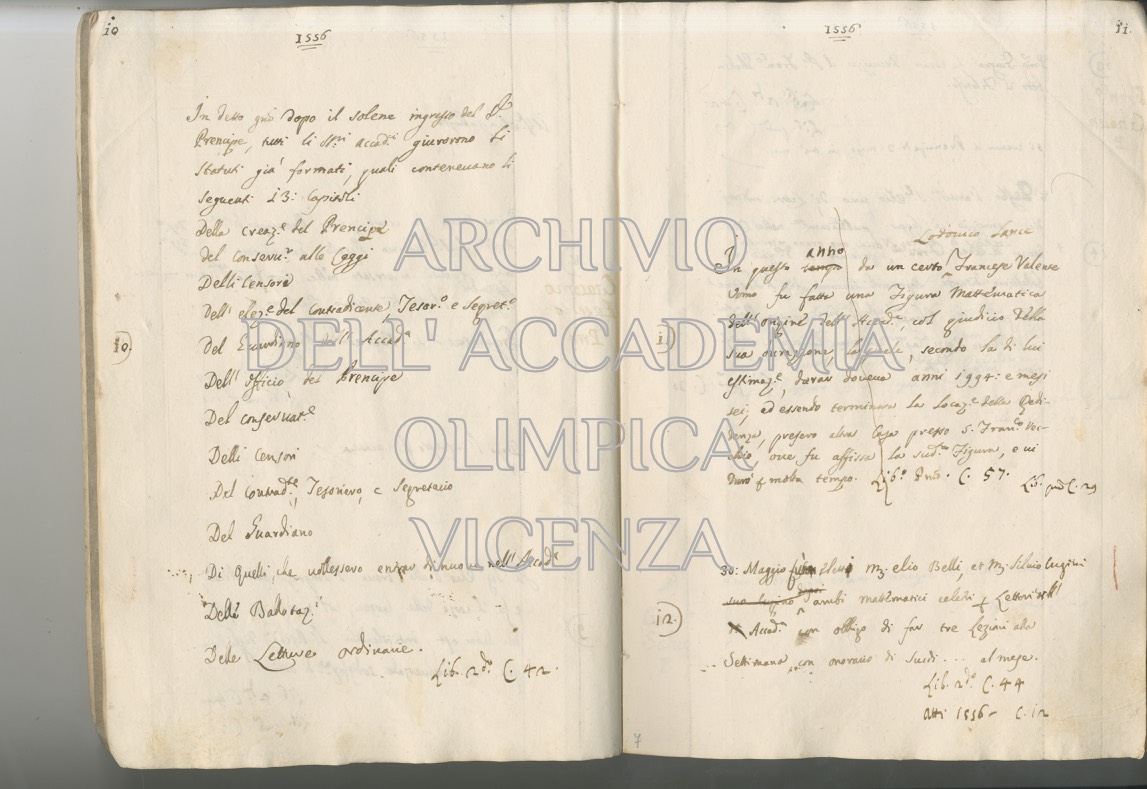 10
1556
In detto gno dopo il solene ingresso del Sr
Prencipe, tutti li Sri Accad.i giurorono li
Statuti già formati, quali contenevano li
seguenti 13: Capitoli
Della creaz.e del Prencipe
Del conseru.r alle Leggi
Delli Censori
Dell' elez.e del Contradicente, Tesor.o e Segret.o
10.
Del Guardiano dell' Accad.a
Dell' officio del Prencipe
Del conseruat.e
Delli Censori
Del Contrad.te, Tesoriero, e Segretario
Del Guardiano
Di Quelli, che uolessero entrar di nuouo nell' Accad.a
Delle Ballotaz.i
Delle Letture ordinarie.
Lib. 2do C. 42
1556
11.
Lodovico
In questo tempo anno da un certo Francese Valente
Uomo fu fatta una Figura Mattematica
dell' origine dell' Accad.a, col giudicio della
11
sua durazione, la quale, secondo la di lui
estimaz.e, durar doueua anni 1994: e mesi
sei, ed essendo terminata la locaz.e della Resi-
denza, presero altra Casa presso S. Fran.co Vec-
chio, oue fu affissa la sud.ta Figura, e ui
durò p molto tempo. Lib.o C. 57.
Lib. C. 29
30: Maggio eletti M. elio Belli, et M. Siluio
12.
ambi mattematici celebri p Lettori dell'
Accad.a con obligo di far tre Lezioni alla
Settimana con onorario di Scudi ... al mese.
Lib. 2do C. 44
Atti 1556 - C. 12
7
ARCHIVIO
DELL' ACCADEMIA
OLIMPICA
VICENZA